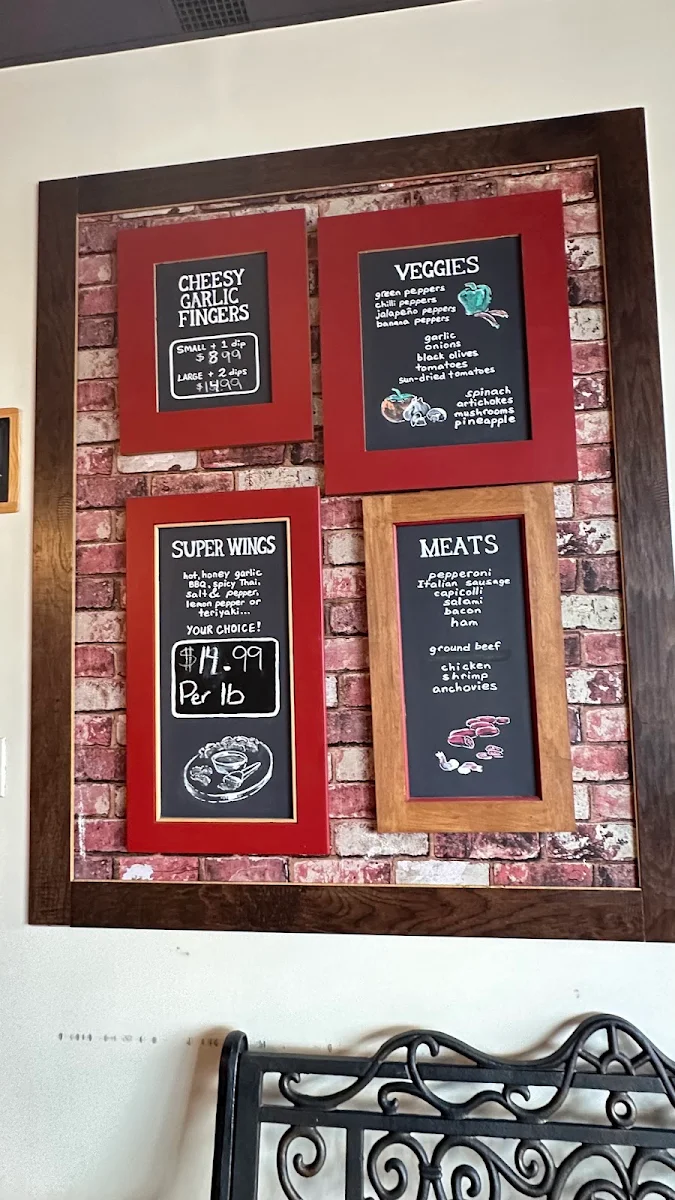 CHEESY
GARLIC
FINGERS
SMALL + 1 dip
$8.99
LARGE + 2 dips
$14.99
VEGGIES
green peppers
chili peppers
jalapeño peppers
banana peppers
garlic
onions
black olives
tomatoes
sun-dried tomatoes
spinach
artichokes
mushrooms
pineapple
SUPER WINGS
hot, honey garlic
BBQ, spicy Thai,
salt & pepper,
lemon pepper or
teriyaki...
YOUR CHOICE!
$14.99
Per lb
MEATS
pepperoni
Italian sausage
capicolli
salami
bacon
ham
ground beef
chicken
shrimp
anchovies